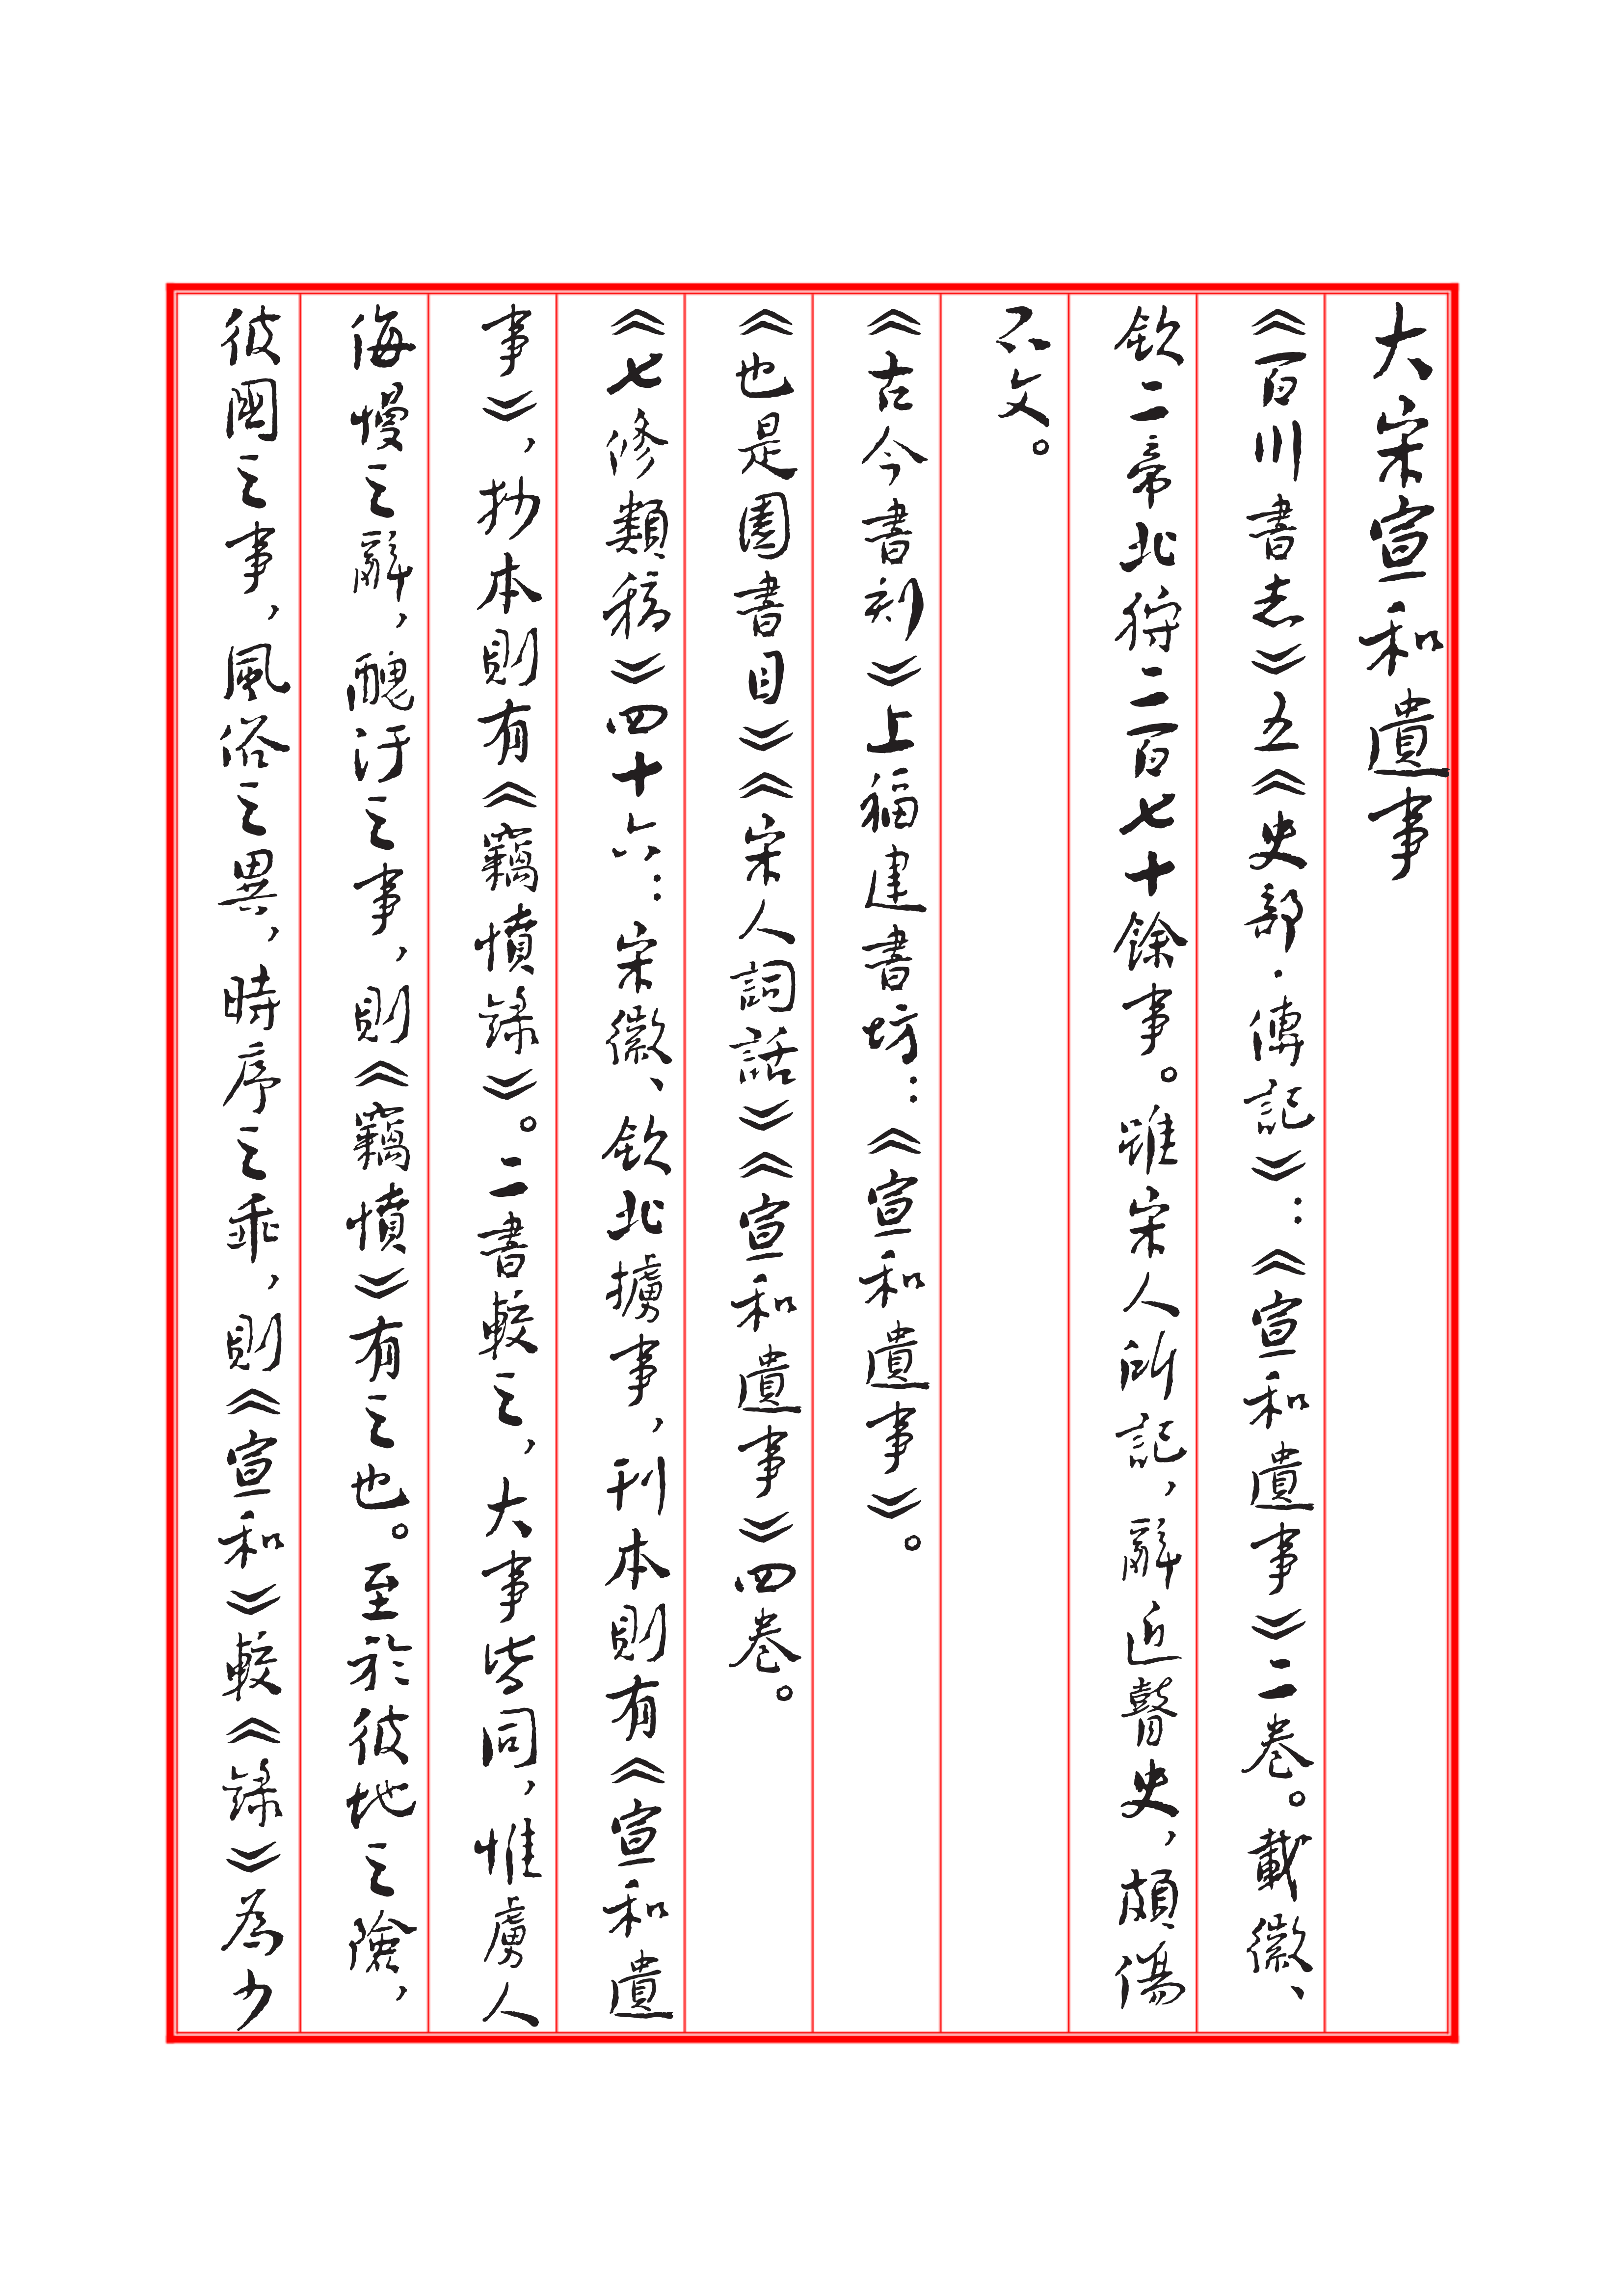 大宋宣和遺事
《百川書志》五《史部·傳記》：《宣和遺事》二卷。載徽、
欽二帝北狩二百七十餘事。雖宋人所記，辭近瞽史，頗傷
不文。
《古今書刻》上福建書坊：《宣和遺事》。
《也是園書目》《宋人詞話》《宣和遺事》四卷。
《七修類稿》四十六：宋徽、欽北擄事，刊本則有《宣和遺
事》，抄本則有《竊憤錄》。二書較之，大事皆同，惟虜人
侮慢之辭，醜汙之事，則《竊憤》有之也。至於彼地之險，
彼國之事，風俗之異，時序之乖，則《宣和》較《錄》為少